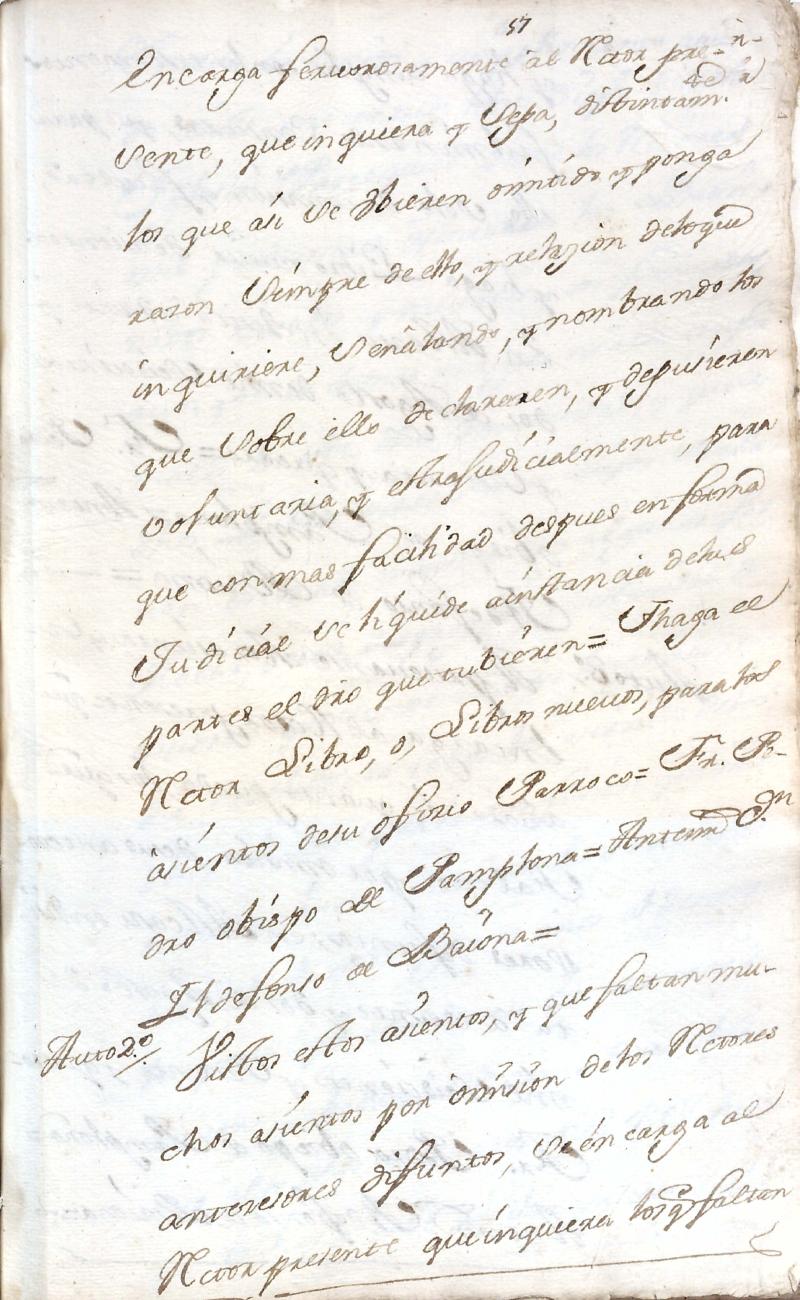 57
Encarga fervorosamente al Rector pre-
sente, que inquiera y Sepa, distintam.te
los que asi se ubieren omitido y ponga
razon Siempre de ello, y relazion delo que
inquiriere, Señalando, y nombrando los
que Sobre ello declararen, y depusieren
voluntaria, y estrajudicialmente, para
que con mas facilidad despues en forma
Judicial se liquide a instancia de las
partes el dro que tubieren= Y haga el
Rector Libro, o, Libros nuevos, para los
asientos desu ofizio Parroco= Fr. Pe-
dro obispo de Pamplona= Antemi D.n
Ildefonso de Baiona=
Auto 2.º/. Vistos estos asientos, y que faltan mu-
chos asientos por omision de los Rectores
antecesores difuntos, se encarga al
Rector presente que inquiera los q faltan